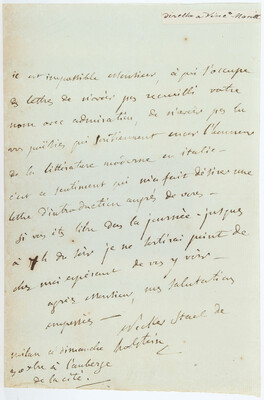 il est impossible Monsieur, à qui s'occupe
de lettres de n'avoir pas recueilli votre
nom avec admiration, de n'avoir pas lu
vos poésies qui soutiennent encor l'honneur
de la littérature moderne en italie –
c'est ce sentiment qui m'a fait désirer une
lettre d'introduction auprès de vous –
Si vous êtes libre dans la journée – jusques
à 7h du soir je ne sortirai point de
chez moi espérant de vous y voir –
agréez Monsieur, mes salutations
empressées –
Necker Stael de
holstein
milan ce dimanche
à l'auberge
de la cité.